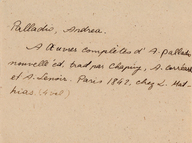 Palladio, Andrea.
A Œuvres complètes d' A. Pallad
nouvelle éd. trad par Chapuy, A. Corréard
et A. Lenoir. Paris 1842, chez L. Mat-
hias. (4 vol)